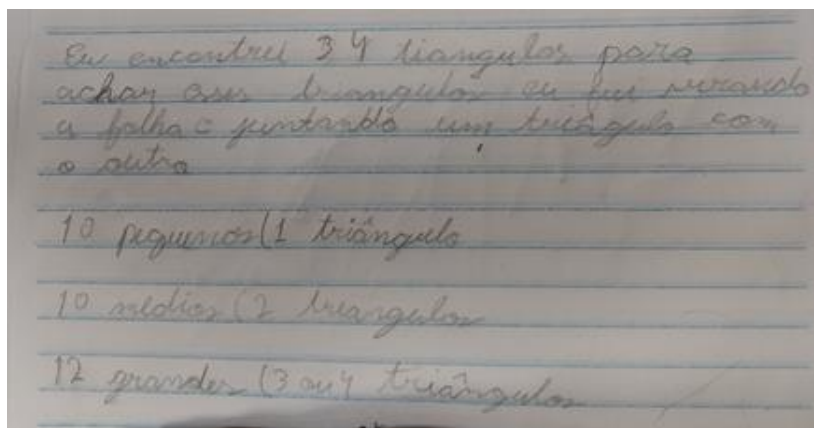 Eu encontrei 34 tiangulos para
achay esses triangulos eu fui virando
a folha e juntando um triângulo com
o outro
10 pequenos(1 triângulo
10 médios (2 triangulos
12 grandes (3 ou 4 triângulos